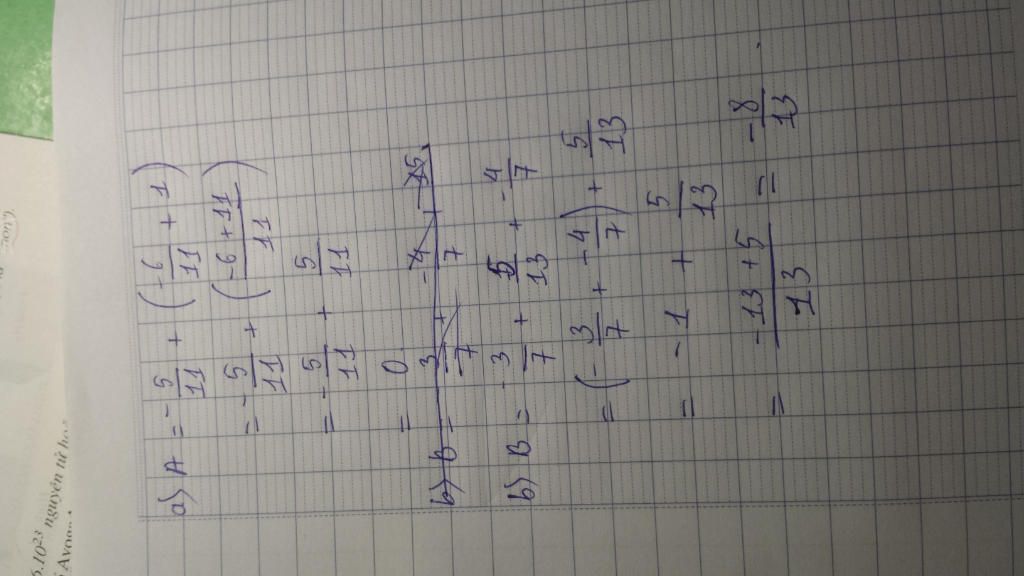 a) A = -5/11 + (-6/11 + 1)
= -5/11 + (-6+11/11)
= -5/11 + 5/11
= 0
b) B = 3/7 + -4/7
b) B = -3/7 + 5/13 + -4/7
= (-3/7 + -4/7) + 5/13
= -1 + 5/13
= -13+5/13 = -8/13
5.10²³ nguyên tử